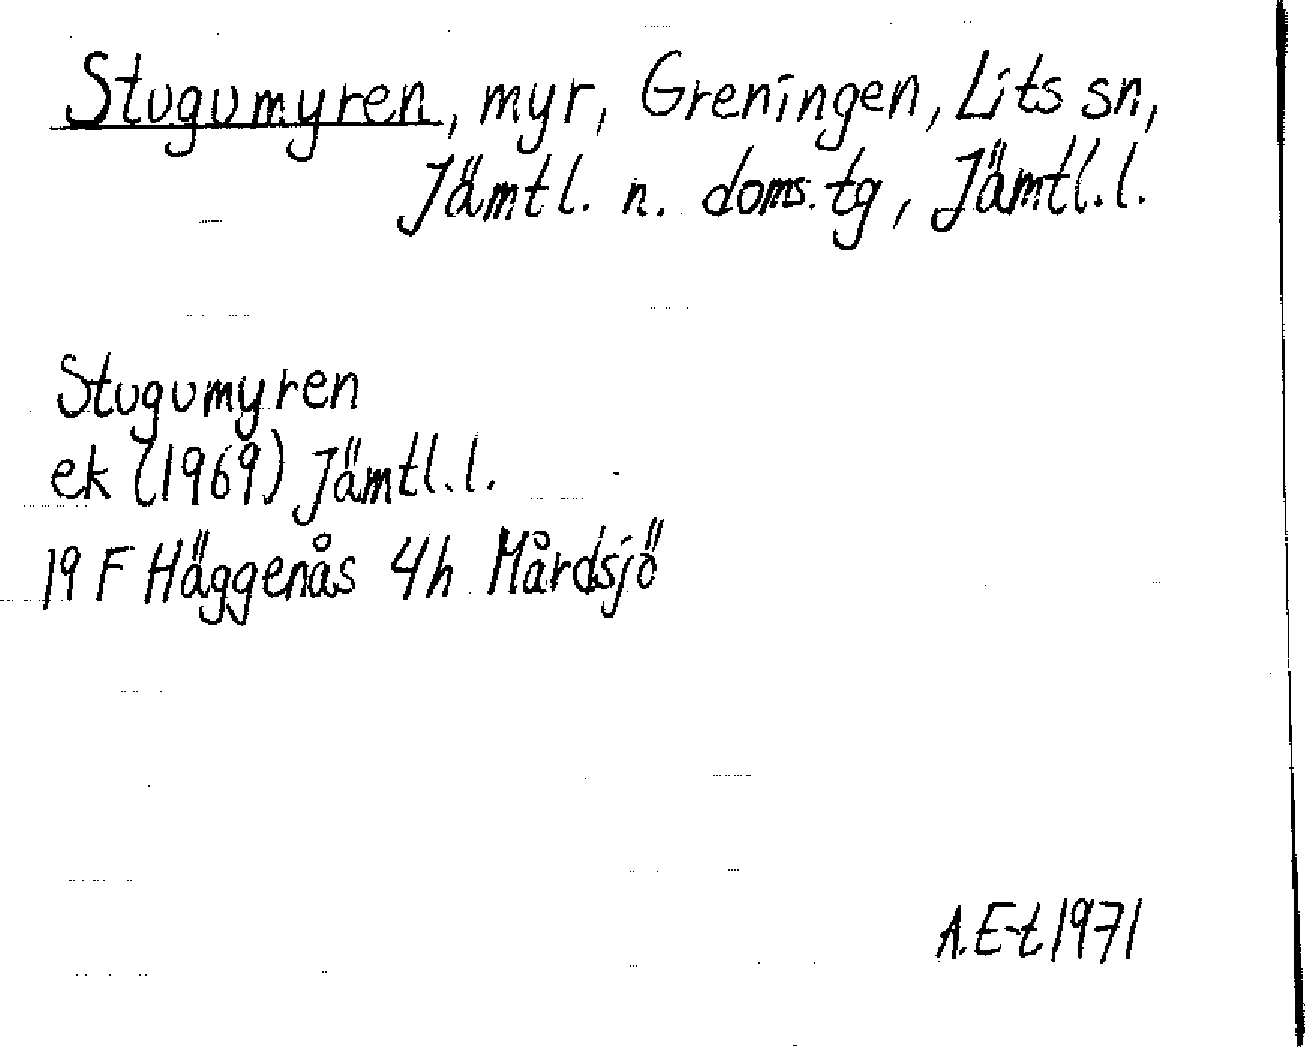 Stugumyren, myr, Greningen, Lits sn,
Jämtl. n. doms.tg, Jämtl.l.
Stugumyren
ek (1969) Jämtl.l.
19 F Häggenås 4h Mårdsjö
A.E-t 1971